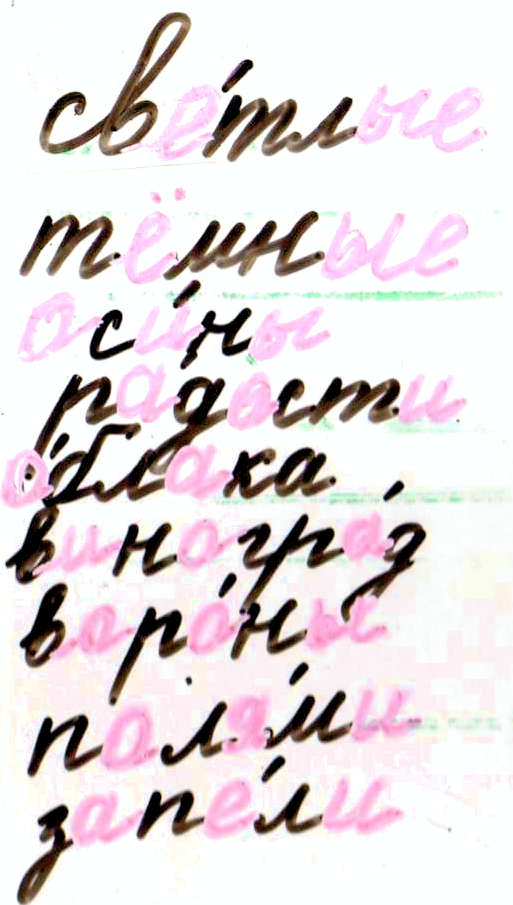 све́тлые
тёмные
оси́ны
радости
о́блака
виногра́д
воро́ны
поля́ми
запе́ли